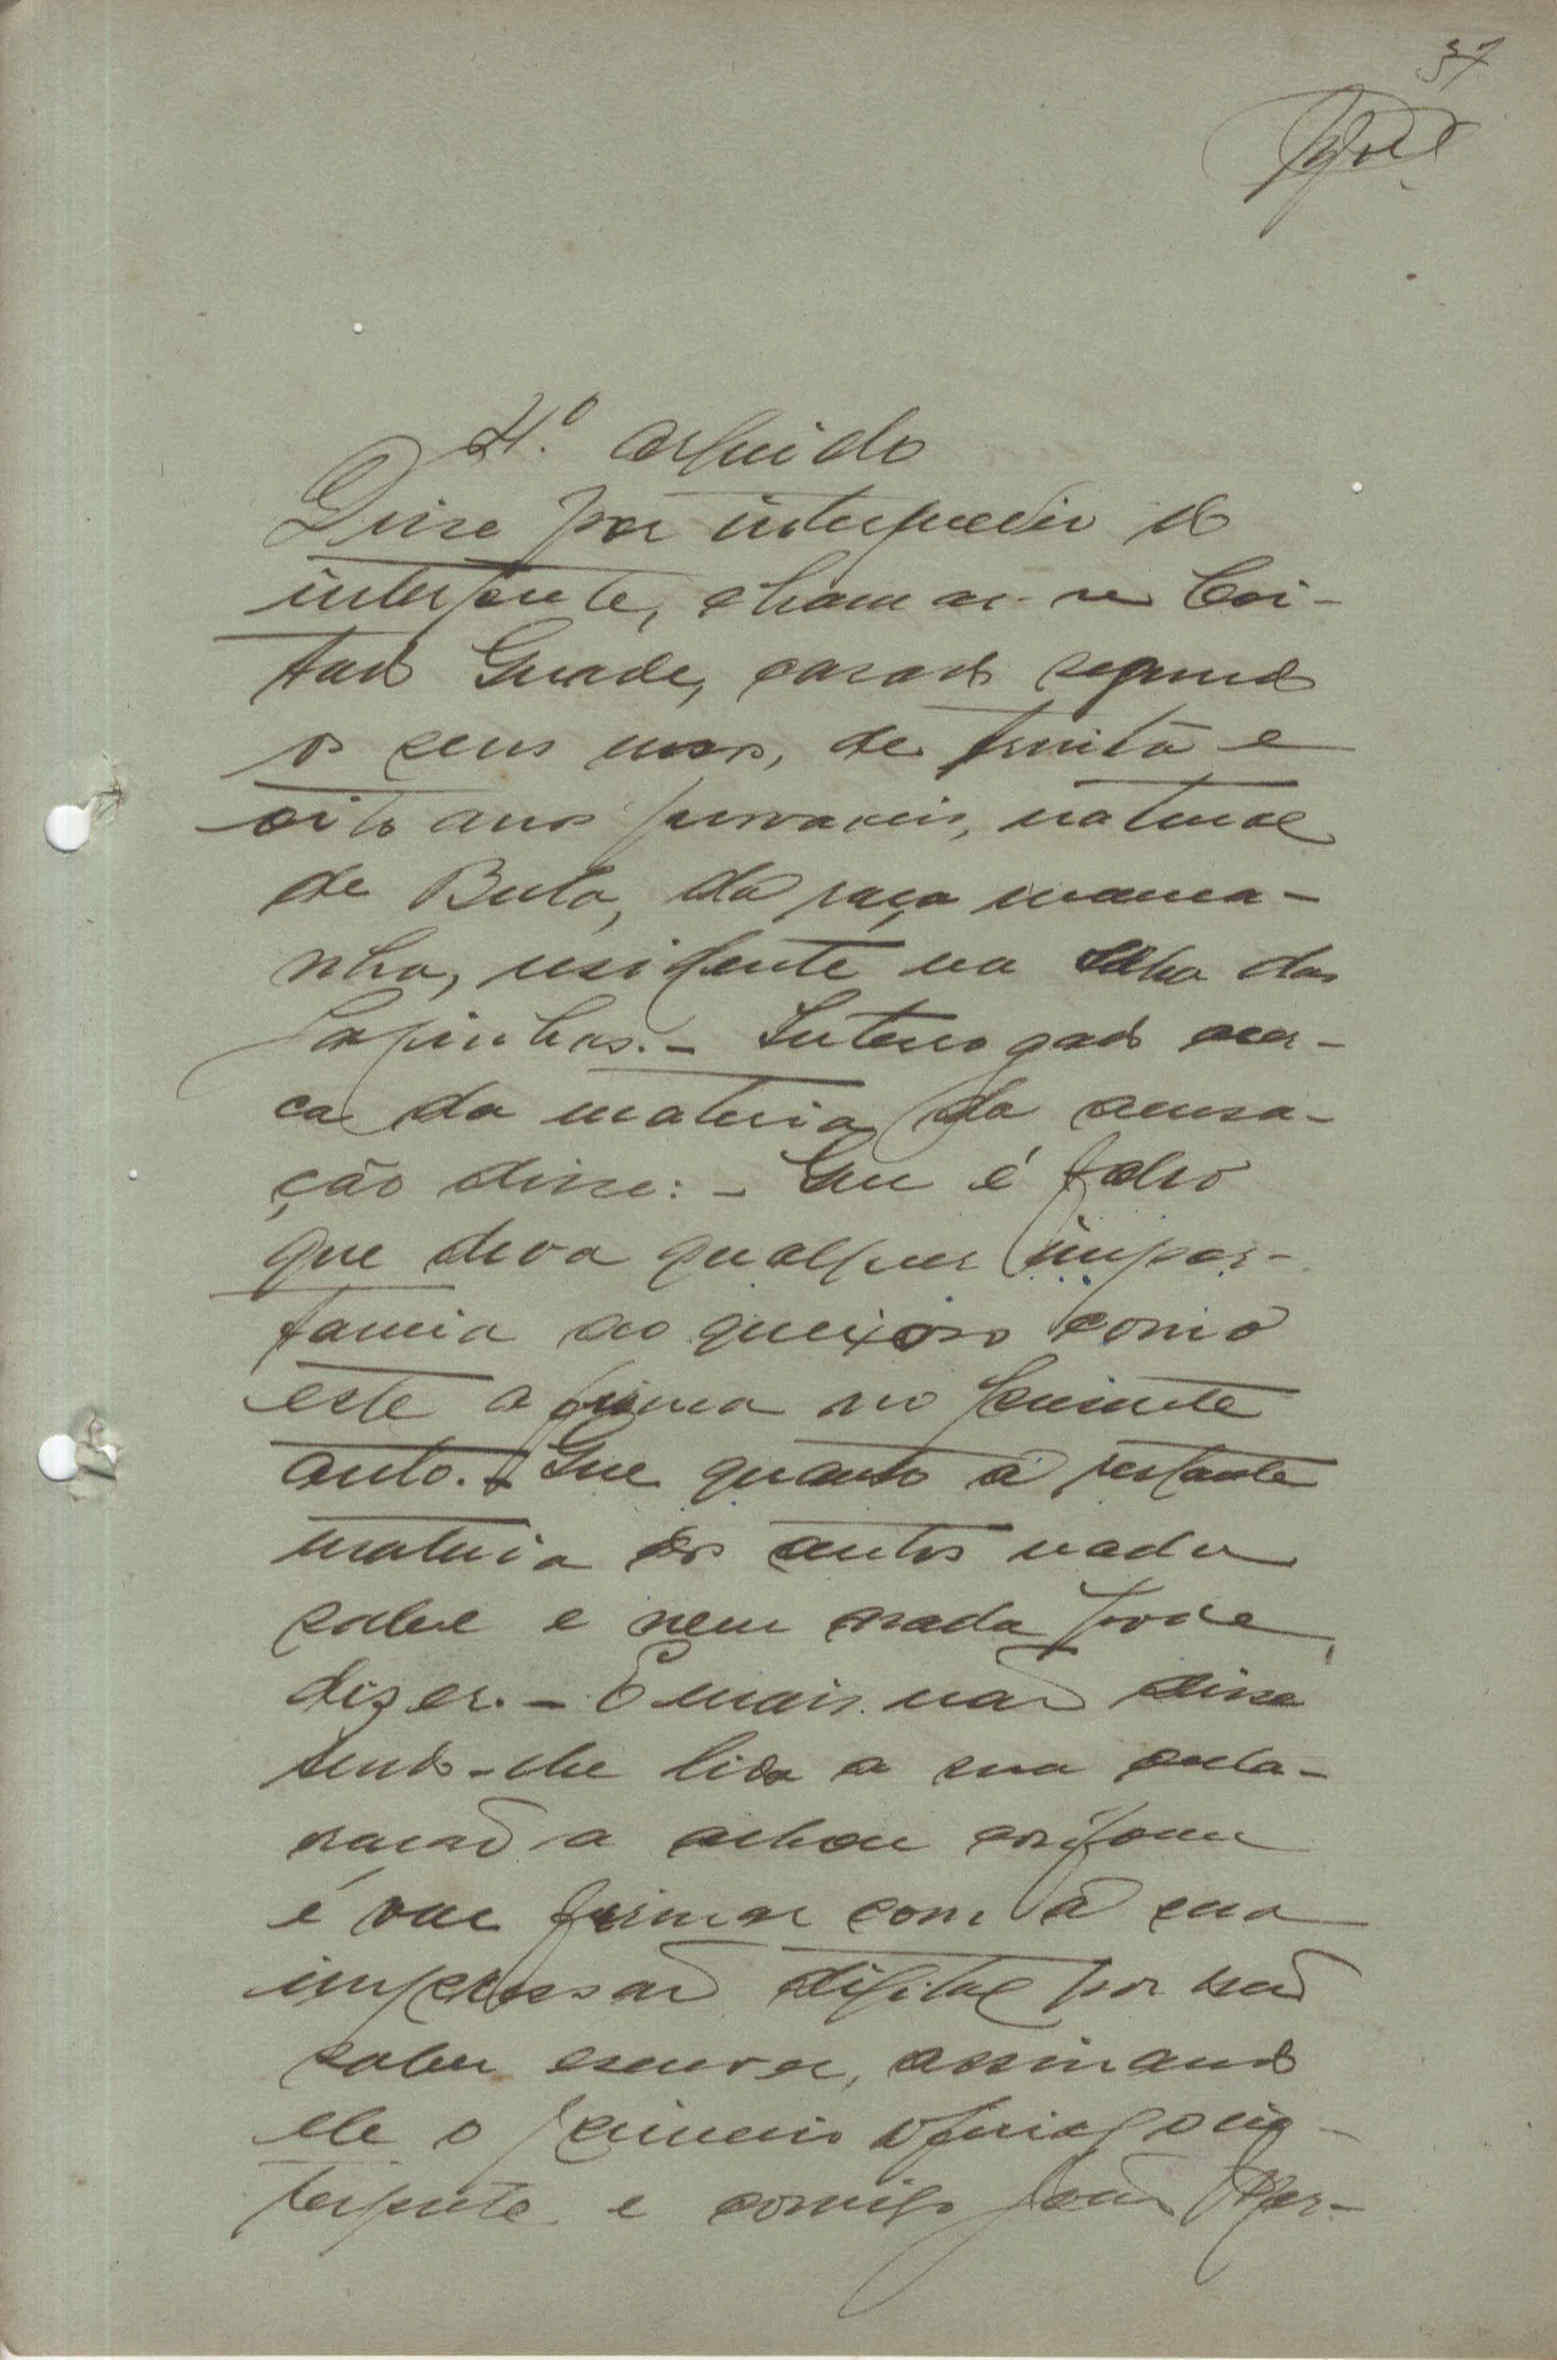 37
4.º Arguido
Disse por intermedio do
interprete, chamar-se Coi-
tado Guade, casado segundo
os seus usos, de trinta e
oito anos provaveis, natural
de Bula, da raça manca-
nha, residente na Ilha das
Galinhas. - Interrogado acer-
ca da materia da acusa-
ção disse: - Que é falso
que deva qualquer impor-
tancia ao queixoso como
este afirma no presente
auto. - Que quanto á restante
materia dos autos nada
sabe e nem nada pode
dizer. - E mais não disse
sendo-lhe lida a sua decla-
ração a achou conforme
e vae firmar com a sua
impressão digital por não
saber escrever, assinando
ele o primeiro oficial o in-
terprete e comigo João Mar-